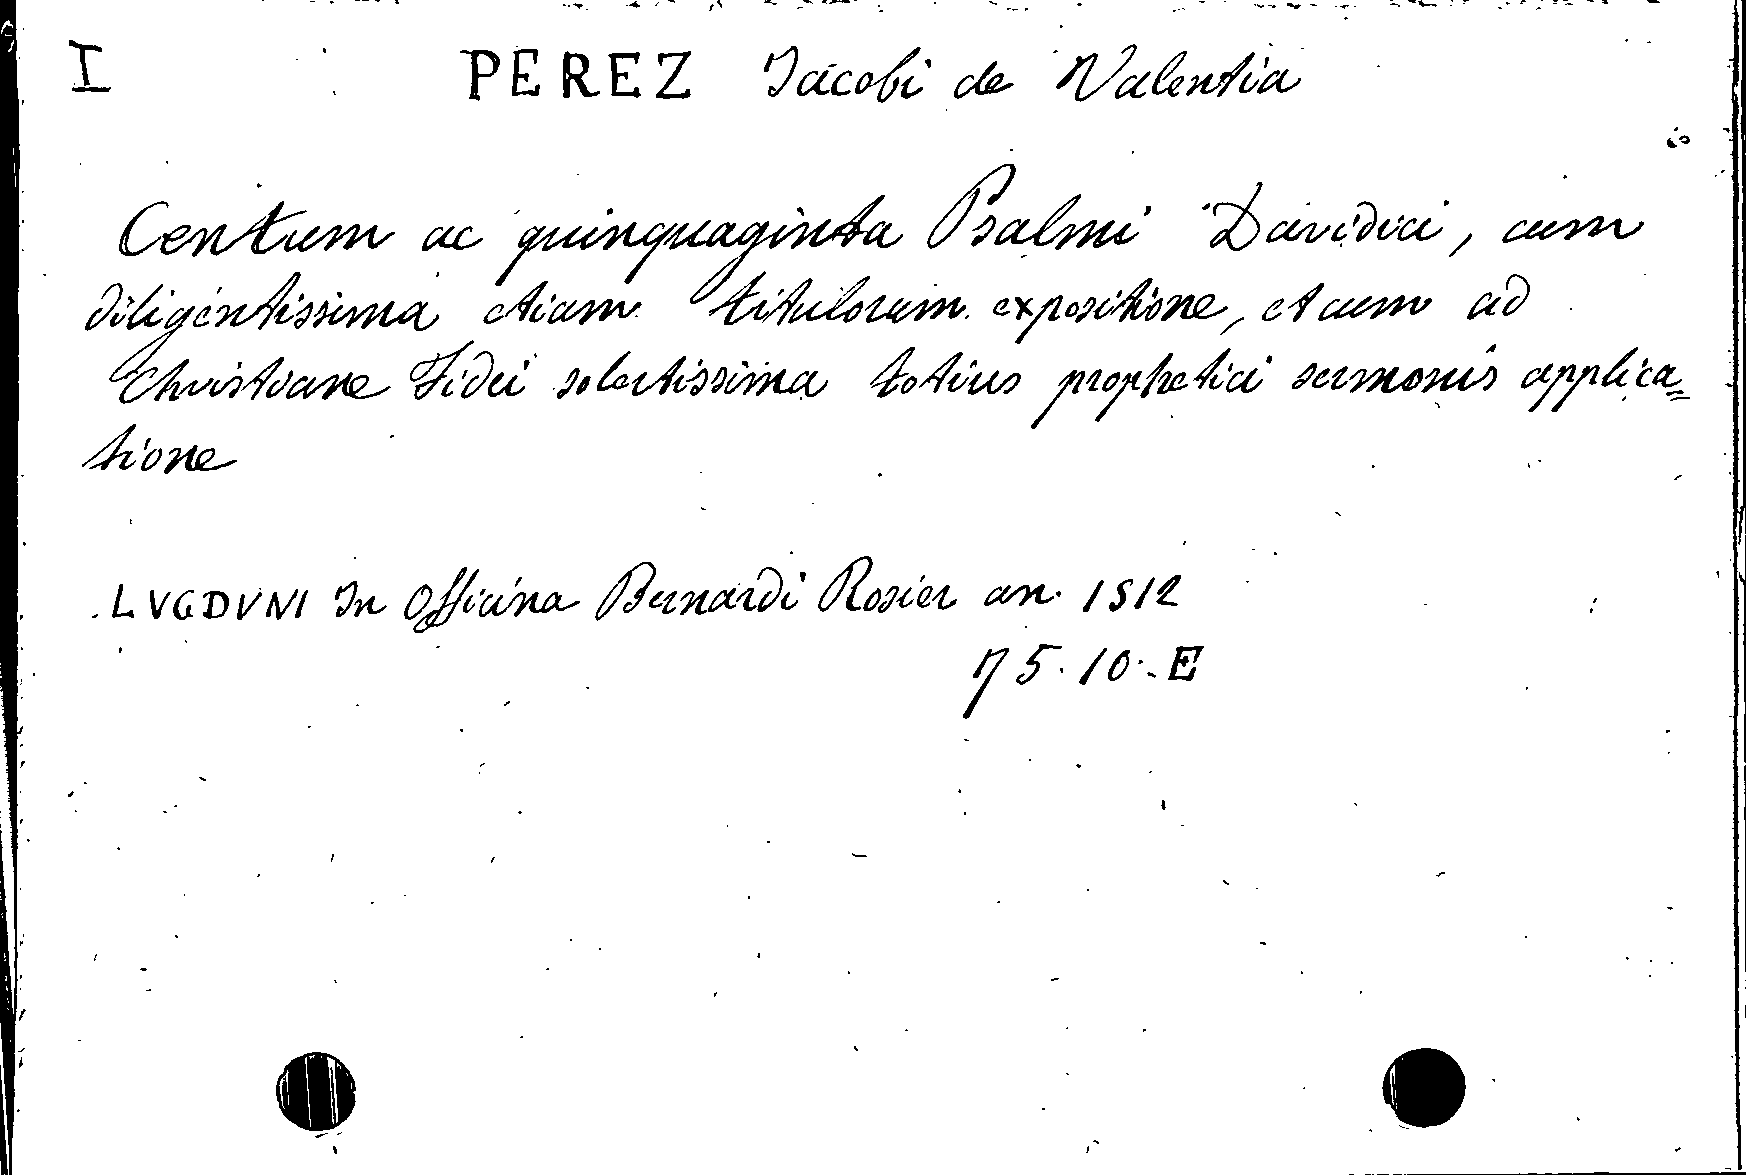 I PEREZ Jacobi de Valentia
Centum ac quinquaginta Psalmi Davidici, cum
diligentissima etiam titulorum expositione, et cum ad
Christiane Fidei solertissima totius prophetici sermonis applica=
tione
LVGDVNI In Officina Bernardi Rosier an. 1512
75.10.E